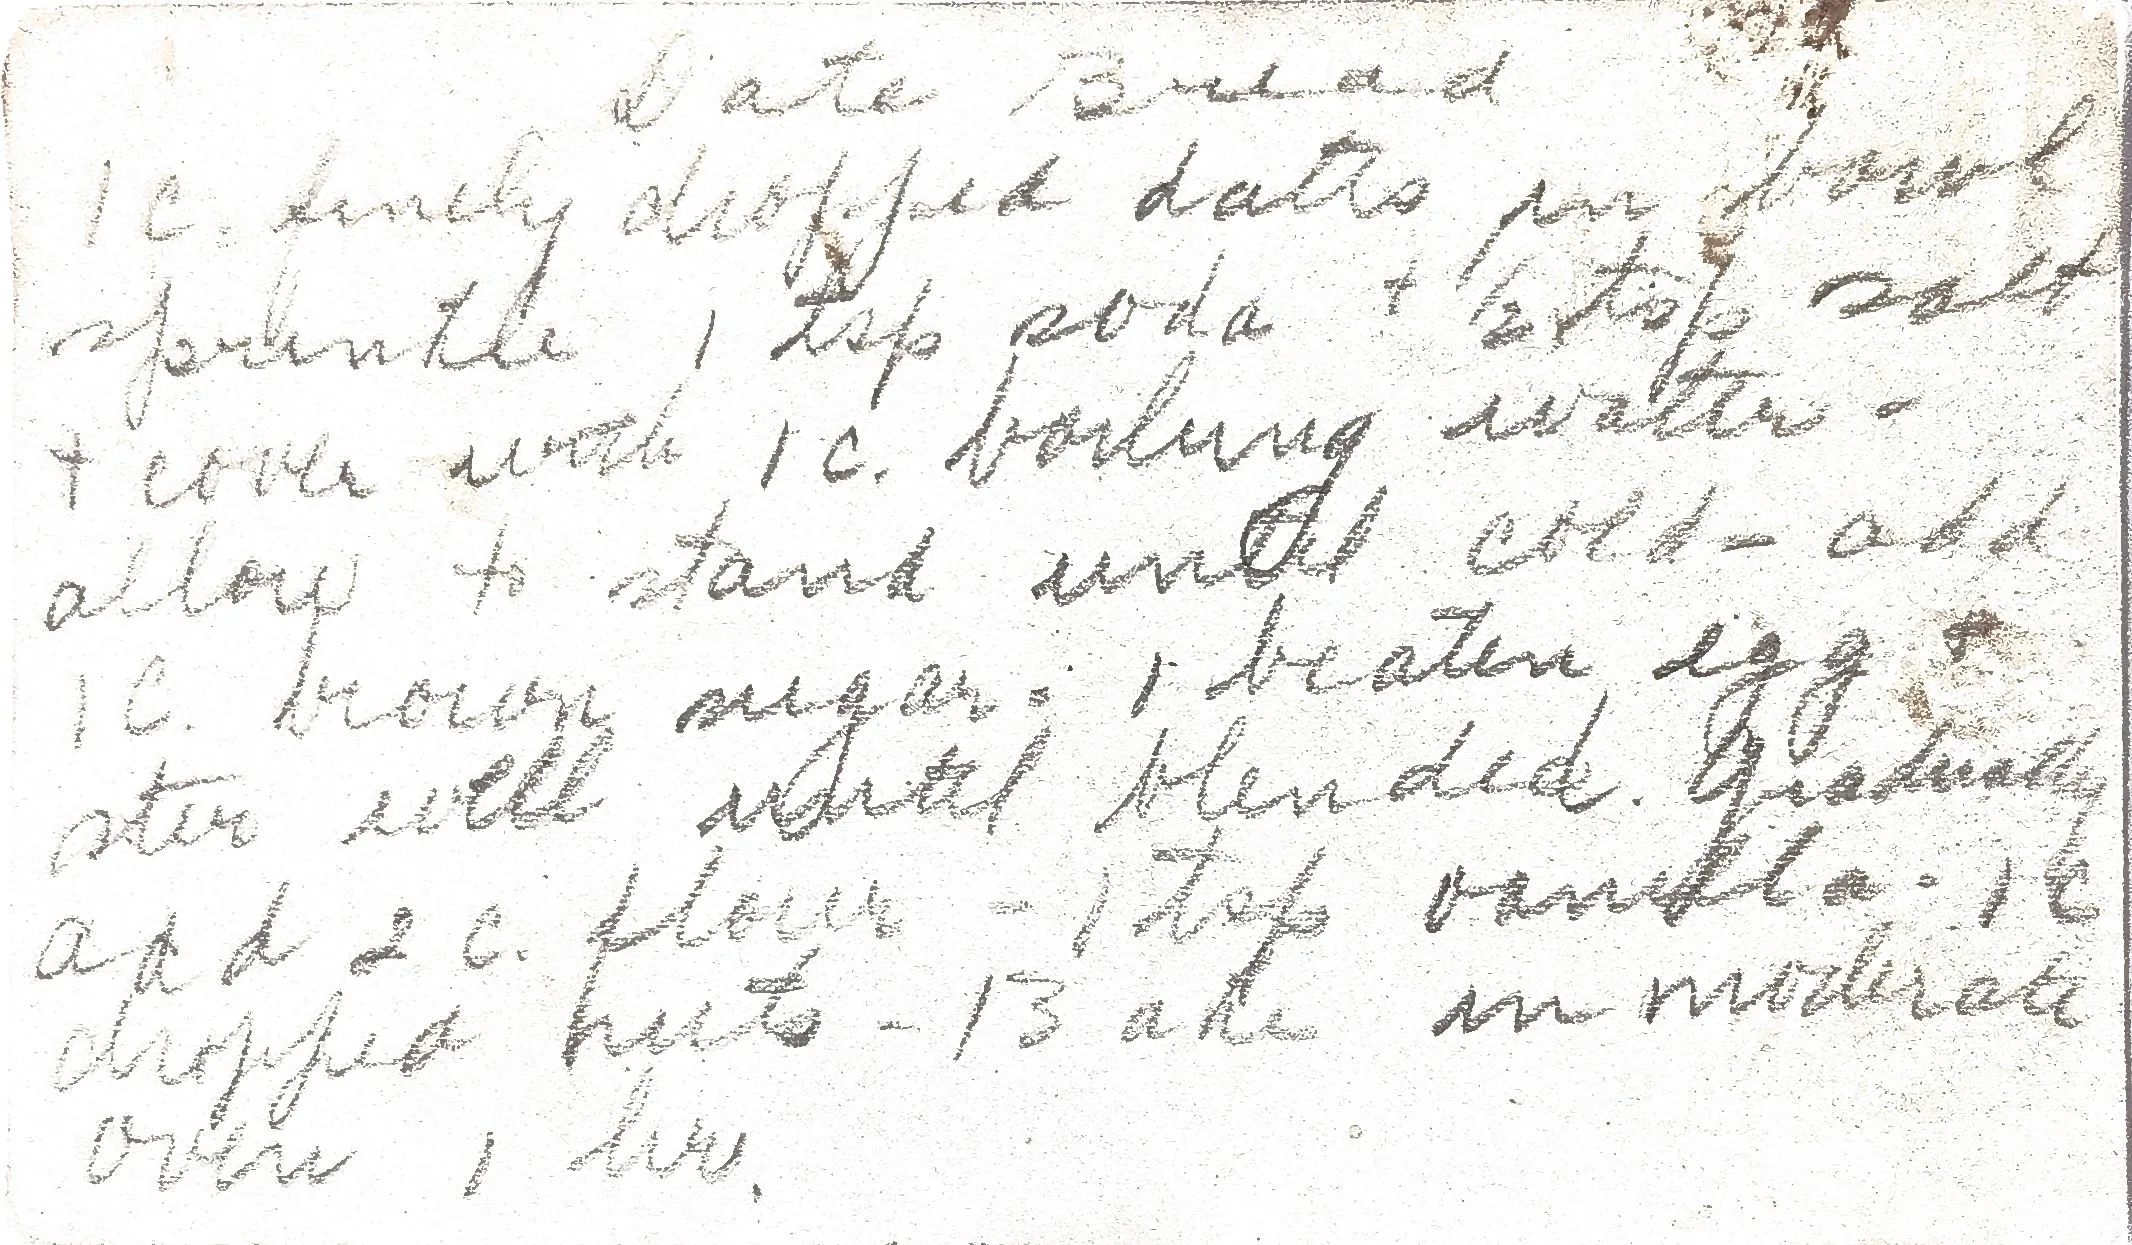 Date Bread
1 c. finely chopped dates in bowl
sprinkle 1 tsp soda + ½ tsp salt
+ cover with 1 c. boiling water -
allow to stand until cold - add
1 c. brown sugar. 1 beaten egg +
stir well until blended. Gradually
add 2 c. flour - 1 tsp vanilla. 1 c
chopped nuts - Bake in moderate
oven 1 hr.